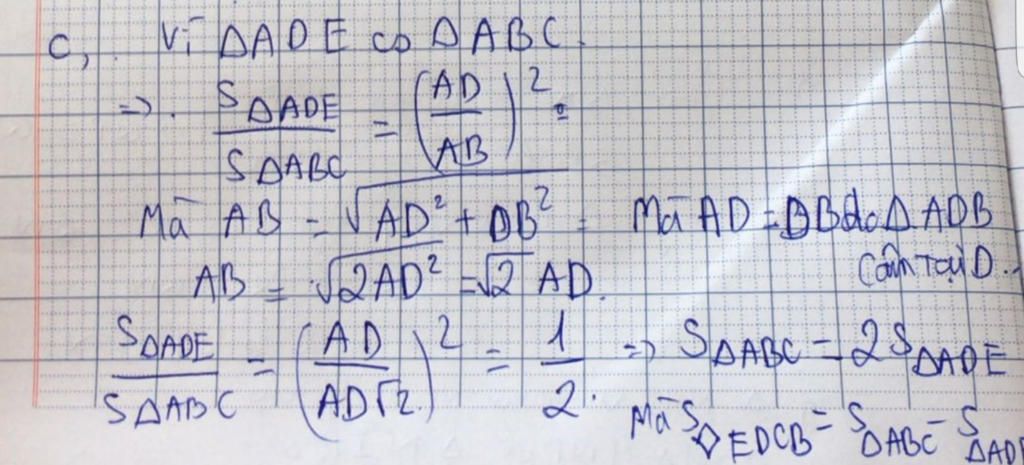 c, Vì ΔADE ∽ ΔABC.
=> . SΔADE / SΔABC = (AD / AB)² =
Mà AB = √(AD² + DB²) = Mà AD = DB do ΔADB
cân tại D.
AB = √(2AD²) = √2 AD.
SΔADE / SΔABC = (AD / AD√2)² = 1/2. => SΔABC = 2SΔADE
Mà S◇EDCB = SΔABC - SΔADE